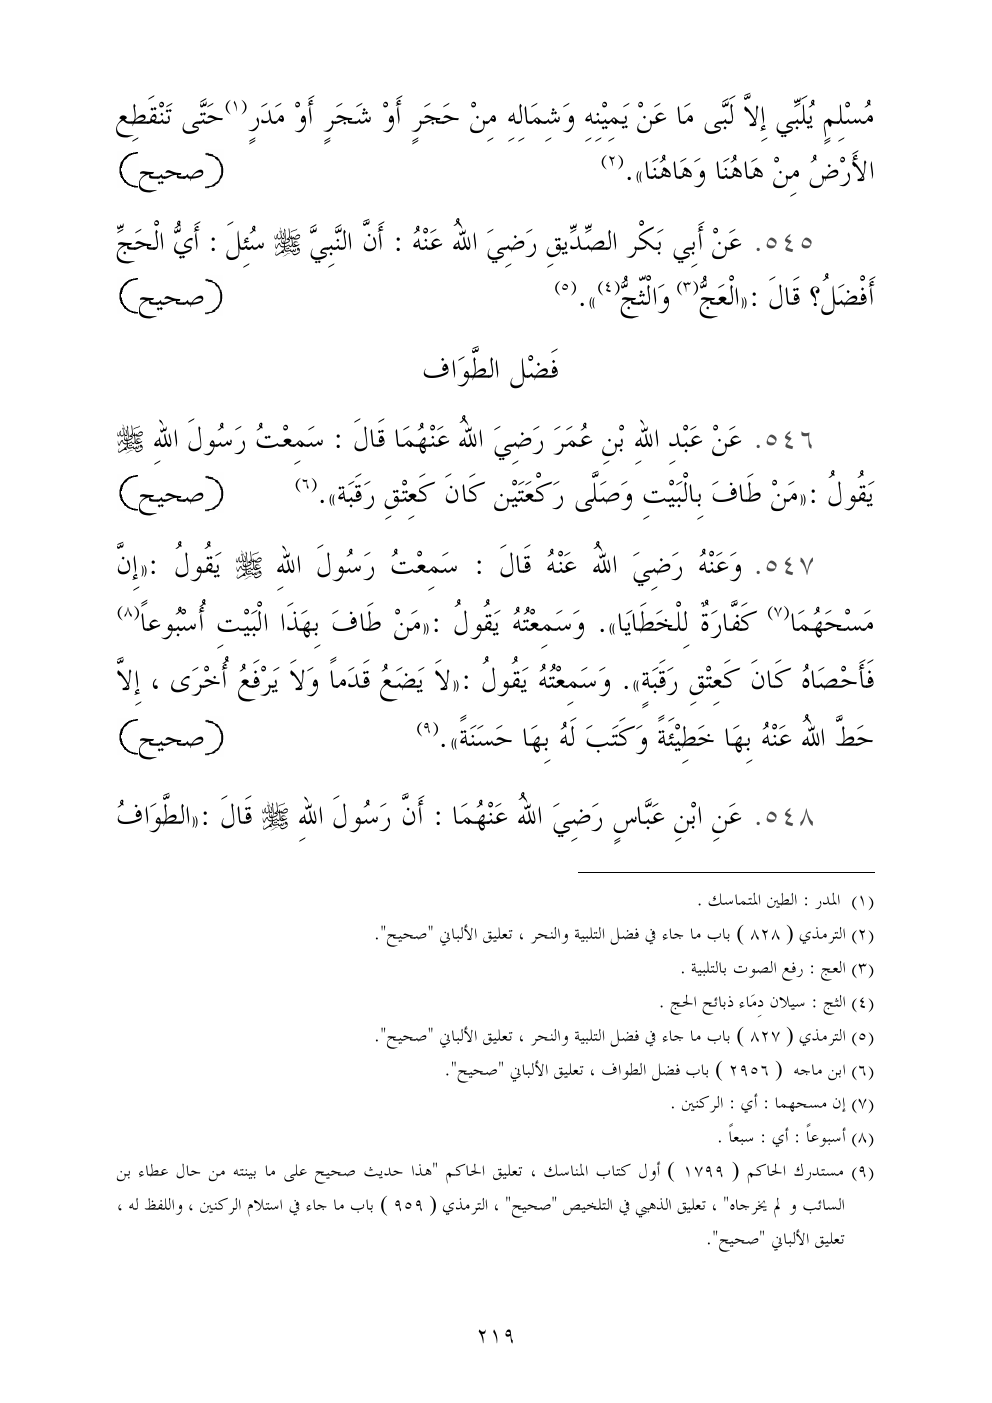 مُسْلِمٍ يُلَبِّي إِلاَّ لَبَّى مَا عَنْ يَمِيْنِهِ وَشِمَالِهِ مِنْ حَجَرٍ أَوْ شَجَرٍ أَوْ مَدَرٍ(١)حَتَّى تَنْقَطِع
الأَرْضُ مِنْ هَاهُنَا وَهَاهُنَا».(٢) (صحيح)
٥٤٥. عَنْ أَبِي بَكْر الصِّدِّيقِ رَضِيَ اللهُ عَنْهُ : أَنَّ النَّبِيَّ ﷺ سُئِلَ : أَيُّ الْحَجِّ
أَفْضَلُ؟ قَالَ :«الْعَجُّ(٣) وَالْثّجُّ(٤)».(٥) (صحيح)
فَضْل الطَّوَاف
٥٤٦. عَنْ عَبْدِ اللهِ بْنِ عُمَرَ رَضِيَ اللهُ عَنْهُمَا قَالَ : سَمِعْتُ رَسُولَ اللهِ ﷺ
يَقُولُ :«مَنْ طَافَ بِالْبَيْتِ وَصَلَّى رَكْعَتَيْن كَانَ كَعِتْقِ رَقَبَة».(٦) (صحيح)
٥٤٧. وَعَنْهُ رَضِيَ اللهُ عَنْهُ قَالَ : سَمِعْتُ رَسُولَ اللهِ ﷺ يَقُولُ :«إِنَّ
مَسْحَهُمَا(٧) كَفَّارَةٌ لِلْخَطَايَا». وَسَمِعْتُهُ يَقُولُ :«مَنْ طَافَ بِهَذَا الْبَيْتِ أُسْبُوعاً(٨)
فَأَحْصَاهُ كَانَ كَعِتْقِ رَقَبَةٍ». وَسَمِعْتُهُ يَقُولُ :«لاَ يَضَعُ قَدَماً وَلاَ يَرْفَعُ أُخْرَى ، إِلاَّ
حَطَّ اللهُ عَنْهُ بِهَا خَطِيْئَةً وَكَتَبَ لَهُ بِهَا حَسَنَةً».(٩) (صحيح)
٥٤٨. عَنِ ابْنِ عَبَّاسٍ رَضِيَ اللهُ عَنْهُمَا : أَنَّ رَسُولَ اللهِ ﷺ قَالَ :«الطَّوَافُ
(١) المدر : الطين المتماسك .
(٢) الترمذي ( ٨٢٨ ) باب ما جاء في فضل التلبية والنحر ، تعليق الألباني "صحيح".
(٣) العج : رفع الصوت بالتلبية .
(٤) الثج : سيلان دِمَاء ذبائح الحج .
(٥) الترمذي ( ٨٢٧ ) باب ما جاء في فضل التلبية والنحر ، تعليق الألباني "صحيح".
(٦) ابن ماجه ( ٢٩٥٦ ) باب فضل الطواف ، تعليق الألباني "صحيح".
(٧) إن مسحهما : أي : الركنين .
(٨) أسبوعاً : أي : سبعاً .
(٩) مستدرك الحاكم ( ١٧٩٩ ) أول كتاب المناسك ، تعليق الحاكم "هذا حديث صحيح على ما بينته من حال عطاء بن
السائب و لم يخرجاه" ، تعليق الذهبي في التلخيص "صحيح" ، الترمذي ( ٩٥٩ ) باب ما جاء في استلام الركنين ، واللفظ له ،
تعليق الألباني "صحيح".
٢١٩